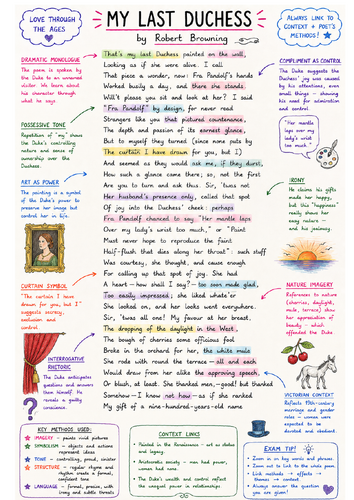 LOVE THROUGH
THE AGES
MY LAST DUCHESS
by Robert Browning
ALWAYS LINK TO
CONTEXT + POET'S
METHODS!
DRAMATIC MONOLOGUE
The poem is spoken by
the Duke to an unnamed
visitor. We learn about
his character through
what he says
POSSESSIVE TONE
Repetition of "my" shows
the Duke's controlling
nature and sense of
ownership over the
Duchess.
ART AS POWER
The painting is a symbol
of the Duke's power to
preserve her image but
control her in life.
CURTAIN SYMBOL
"The curtain I have
drawn for you, but I"
suggests secrecy,
seclusion and
control.
INTERROGATIVE
RHETORIC
The Duke anticipates
questions and answers
them himself. He
reveals a guilty
conscience.
That's my last Duchess painted on the wall,
Looking as if she were alive. I call
That piece a wonder, now: Fra Pandolf's hands
Worked busily a day, and there she stands.
Will't please you sit and look at her? I said
"Fra Pandolf" by design, for never read
Strangers like you that pictured countenance,
The depth and passion of its earnest glance,
But to myself they turned (since none puts by
The curtain I have drawn for you, but I)
And seemed as they would ask me, if they durst,
How such a glance came there; so, not the first
Are you to turn and ask thus. Sir, 'twas not
Her husband's presence only, called that spot
Of joy into the Duchess' cheek: perhaps
Fra Pandolf chanced to say "Her mantle laps
Over my lady's wrist too much," or "Paint
Must never hope to reproduce the faint
Half-flush that dies along her throat": such stuff
Was courtesy, she thought, and cause enough
For calling up that spot of joy. She had
A heart—how shall I say?—too soon made glad,
Too easily impressed; she liked whate'er
She looked on, and her looks went everywhere.
Sir, 'twas all one! My favour at her breast,
The dropping of the daylight in the West,
The bough of cherries some officious fool
Broke in the orchard for her, the white mule
She rode with round the terrace—all and each
Would draw from her alike the approving speech,
Or blush, at least. She thanked men,—good! but thanked
Somehow—I know not how—as if she ranked
My gift of a nine-hundred-years-old name
COMPLIMENT AS CONTROL
The Duke suggests the
Duchess' joy was caused
by his attentions, even
small things - showing
his need for admiration
and control
"Her mantle
laps over my
lady's wrist
too much"
IRONY
He claims his gifts
made her happy,
but this "happiness"
really shows her
easy nature —
and his jealousy.
NATURE IMAGERY
References to nature
(cherries, daylight,
mule, terrace) show
her appreciation of
beauty - which
offended the Duke
VICTORIAN CONTEXT
Reflects 19th-century
marriage and gender
roles - women were
expected to be
devoted and obedient.
KEY METHODS USED:
IMAGERY - paints vivid pictures
SYMBOLISM - objects and actions
represent ideas
TONE - controlling, proud, sinister
STRUCTURE - regular rhyme and
rhythm create a formal,
confident tone
LANGUAGE - formal, precise, with
irony and subtle threats
CONTEXT LINKS
- Painted in the Renaissance - art as status
and legacy.
- Aristocratic society - men had power,
women had none.
- The Duke's wealth and control reflect
the unequal power in relationships
EXAM TIP!
Zoom in on key words and phrases.
Zoom out to link to the whole poem.
Link methods → effects →
themes → context
Always answer the question
you are given!